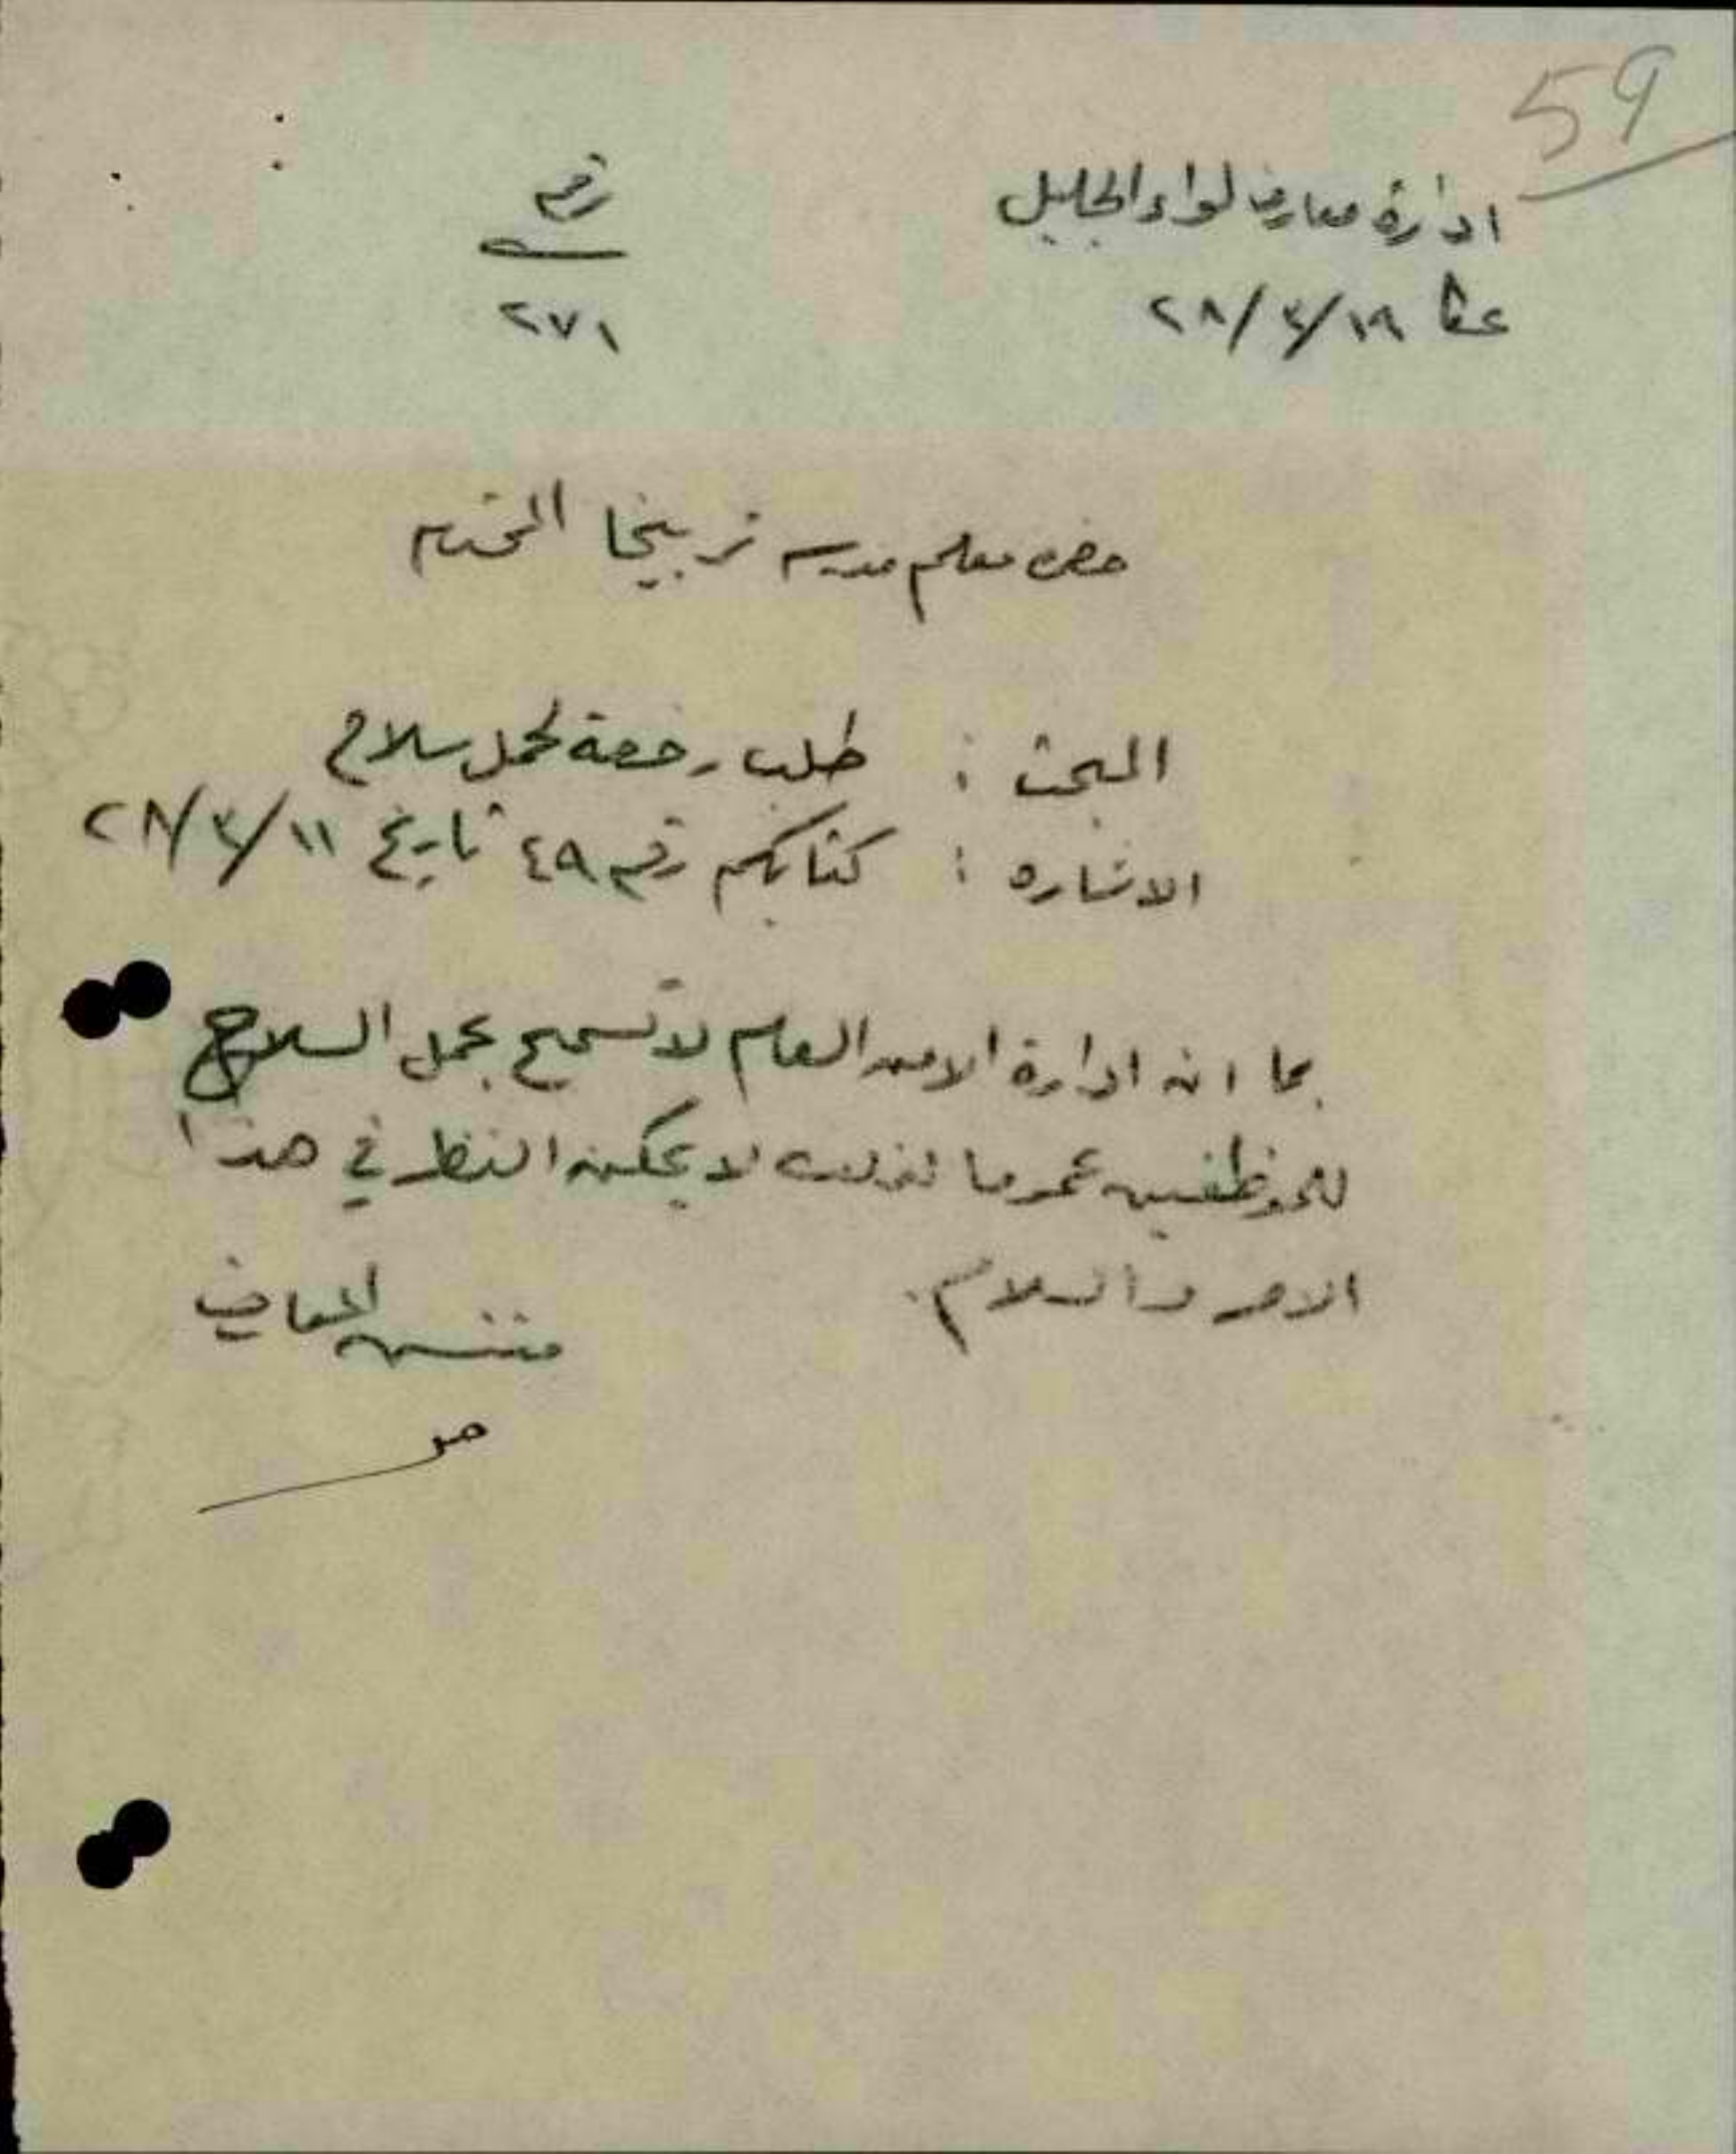 59
ادارة معارف لواء الجليل
رقم
عكا ١٩/٣/٢٨
٢٧١
حضرة معلم مدرسة تربيخا المحترم
البحث : طلب رخصة لحمل سلاح
الاشارة : كتابكم رقم ٤٩ تاريخ ١١/٣/٢٨
بما ان ادارة الامن العام لا تسمح بحمل السلاح
للموظفين عموما لذلك لا يمكن النظر في هذا
الامر والسلام.
مفتش المعارف